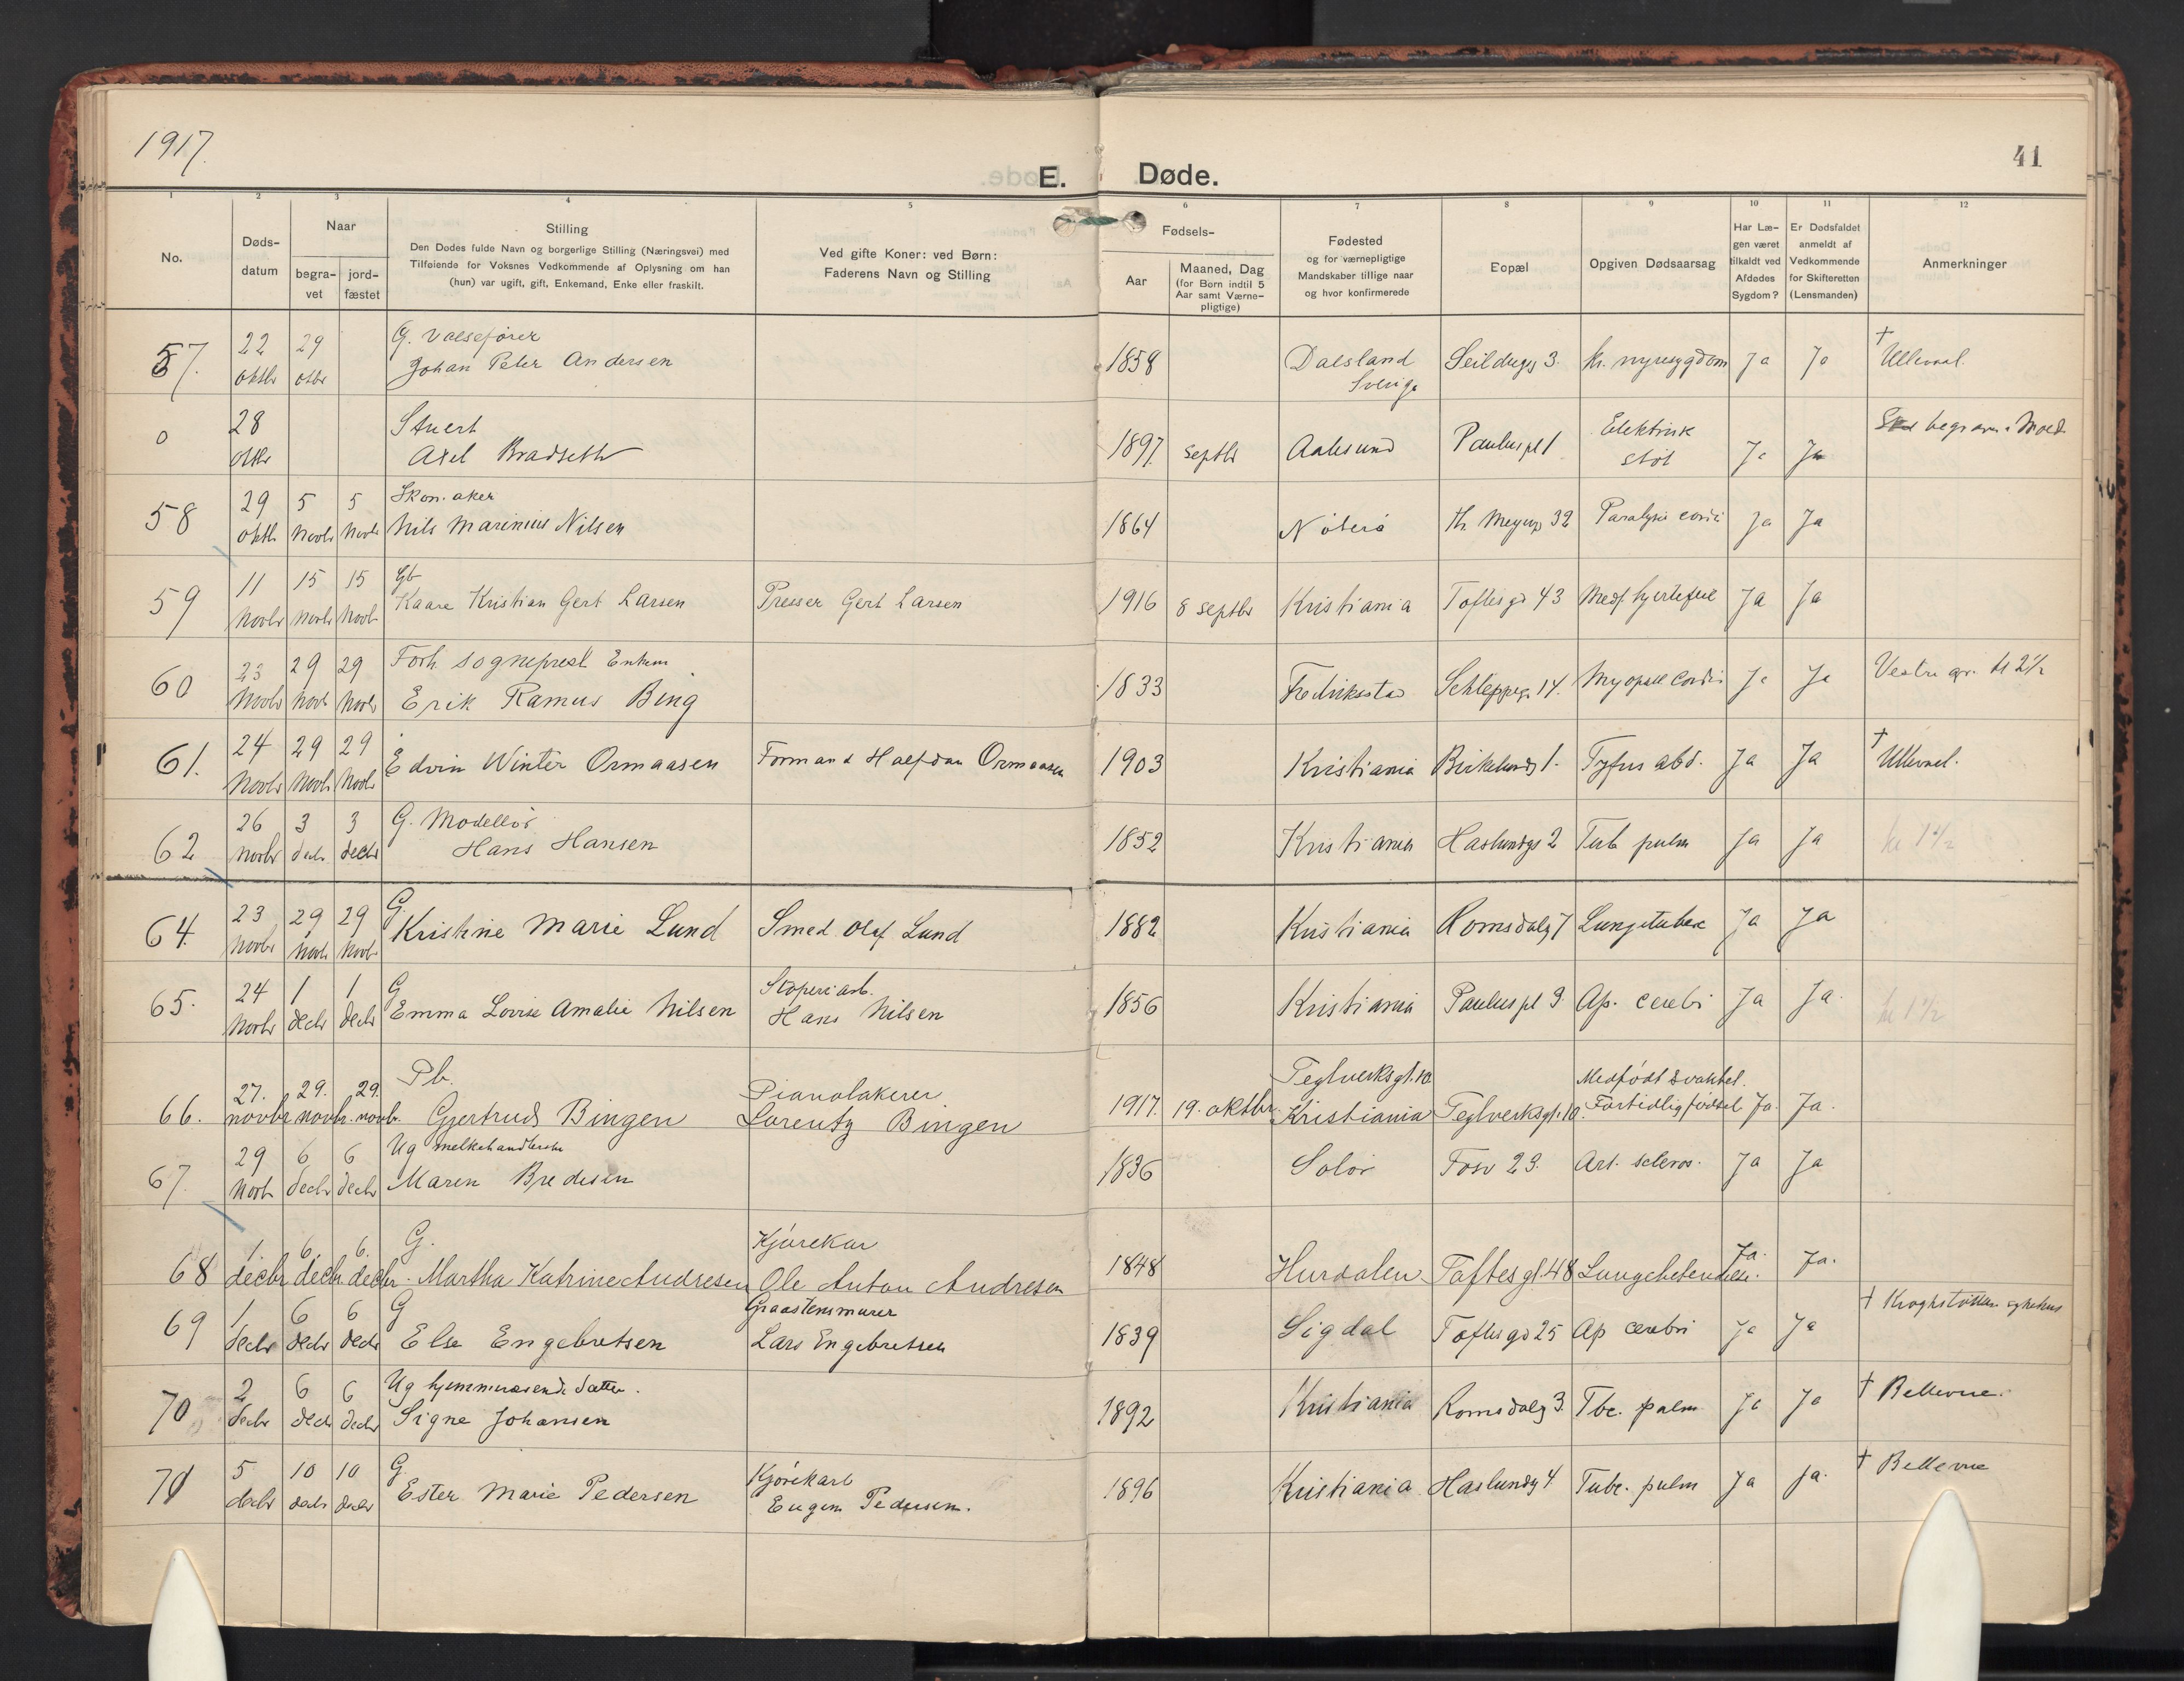 1917.
41
E. Døde.
1 2 3 4 5 6 7 8 9 10 11 12
No.
Døds-
datum
Naar
begra-
vet
jord-
fæstet
Stilling
Den Dødes fulde Navn og borgerlige Stilling (Næringsvei) med
Tilføiende for Voksnes Vedkommende af Oplysning om han
(hun) var ugift, gift, Enkemand, Enke eller fraskilt.
Ved gifte Koner: ved Børn:
Faderens Navn og Stilling
Fødsels-
Aar
Maaned, Dag
(for Børn indtil 5
Aar samt Værne-
pligtige)
Fødested
og for værnepligtige
Mandskaber tillige naar
og hvor konfirmerede
Bopæl
Opgiven Dødsaarsag
Har Læ-
gen været
tilkaldt ved
Afdødes
Sygdom?
Er Dødsfaldet
anmeldt af
Vedkommende
for Skifteretten
(Lensmanden)
Anmerkninger
57. 22 29 G. Valsefører
oktbr Johan Peter Andersen 1858 Dalsland 3. kr. nyresygdom Ja Ja † Ullevaal.
Sverige
0 28 Stuert
Axel Bradseth 1897. septbr Aalesund Pauluspl 1 Elektrisk Ja Ja
støt
58 29 5 5
oktb. Novbr Novbr Nils Marinius Nilsen 1864 Nøterø 32 Paralysis cordis Ja Ja
59 11 15 15 Gb
Novbr Novbr Novbr Kaare Kristian Gert Larsen Presser Gert Larsen 1916 8 septbr Kristiania Toftesgd 43 Medf. hjertefeil Ja Ja
60 23 29 29 Forh. sogneprest Enkem
Novbr Novbr Novbr Erik Ramus Bing 1833 Fredriksstad Schleppegr. 14. cordis Ja Ja Vestre gr. kl 2 1/2
61. 24 29 29
Novbr Novbr Novbr Edvin Winter Ormaasen Formand Halfdan Ormaasen 1903 Kristiania Birkelundg 1. Tyfus abd. Ja Ja † Ullevaal.
62 26 3 3 G. Modellør
Novbr decbr decbr Hans Hansen 1852 Kristiania Haslundgs 2 Tub pulm Ja Ja kl 1 1/2
64. 23 29 29 G.
Novbr Novbr Novbr Kristine Marie Lund Smed Olaf Lund 1882 Kristiania Romsdalg 7 Lungetuberk Ja Ja
65. 24 1 1 G Støperiarb.
Novbr decbr decbr Emma Lovise Amalie Nilsen Hans Nilsen 1856 Kristiania Pauluspl 9. Ap. cerebri Ja Ja. kl 1 1/2
66. 27. 29. 29. Pb. Pianolakerer Teglverksgt. 10 Medfødt svakhet.
novbr novbr. novbr. Gjertrud Bingen Lorentz Bingen 1917. 19. oktbr. Kristiania Teglverksgt. 10. Fortidlig fødsel Ja. Ja.
67. 29 6 6 Ug melkehandlerske
Novbr decbr decbr Maren Bredesen 1836 Solør Fosv 23. Art. scleros. Ja Ja
68 1. 6. 6. G. Kjørekar
decbr decbr. decbr. Martha Katrine Andresen Ole Anton Andresen 1848 Hurdalen Toftesgt. 48 Lungebetendelse. Ja. Ja.
69 1 6 6 G Graastensmurer
decbr decbr decbr Else Engebretsen Lars Engebretsen 1839 Sigdal Toftesgd 25 Ap cerebri Ja Ja † Kroghstøttens sykehus
70 2 6 6 Ug hjemmeværende datter.
decbr decbr decbr Signe Johansen 1892 Kristiania Romsdalg 3. Tbc. pulm Ja Ja † Bellevue.
71 5 10 10 G Kjørekarl
decbr decbr decbr Ester Marie Pedersen Eugen Pedersen. 1896 Kristiania Haslundg 4 Tubc. pulm Ja Ja. † Bellevue